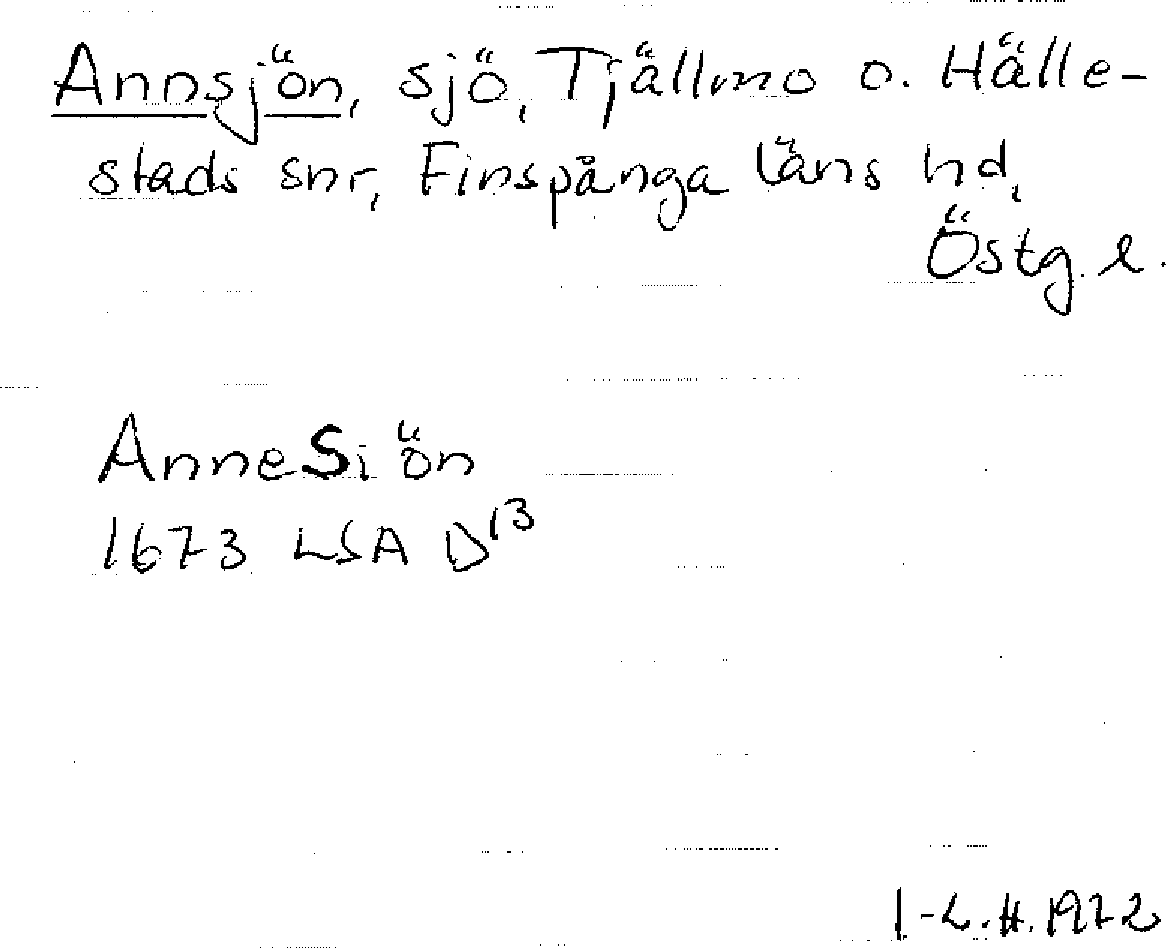 Annsjön, sjö, Tjällmo o. Hälle-
stads snr, Finspånga läns hd,
Östg. l.
AnneSiön
1673 LSA D13
I-L.H. 1972